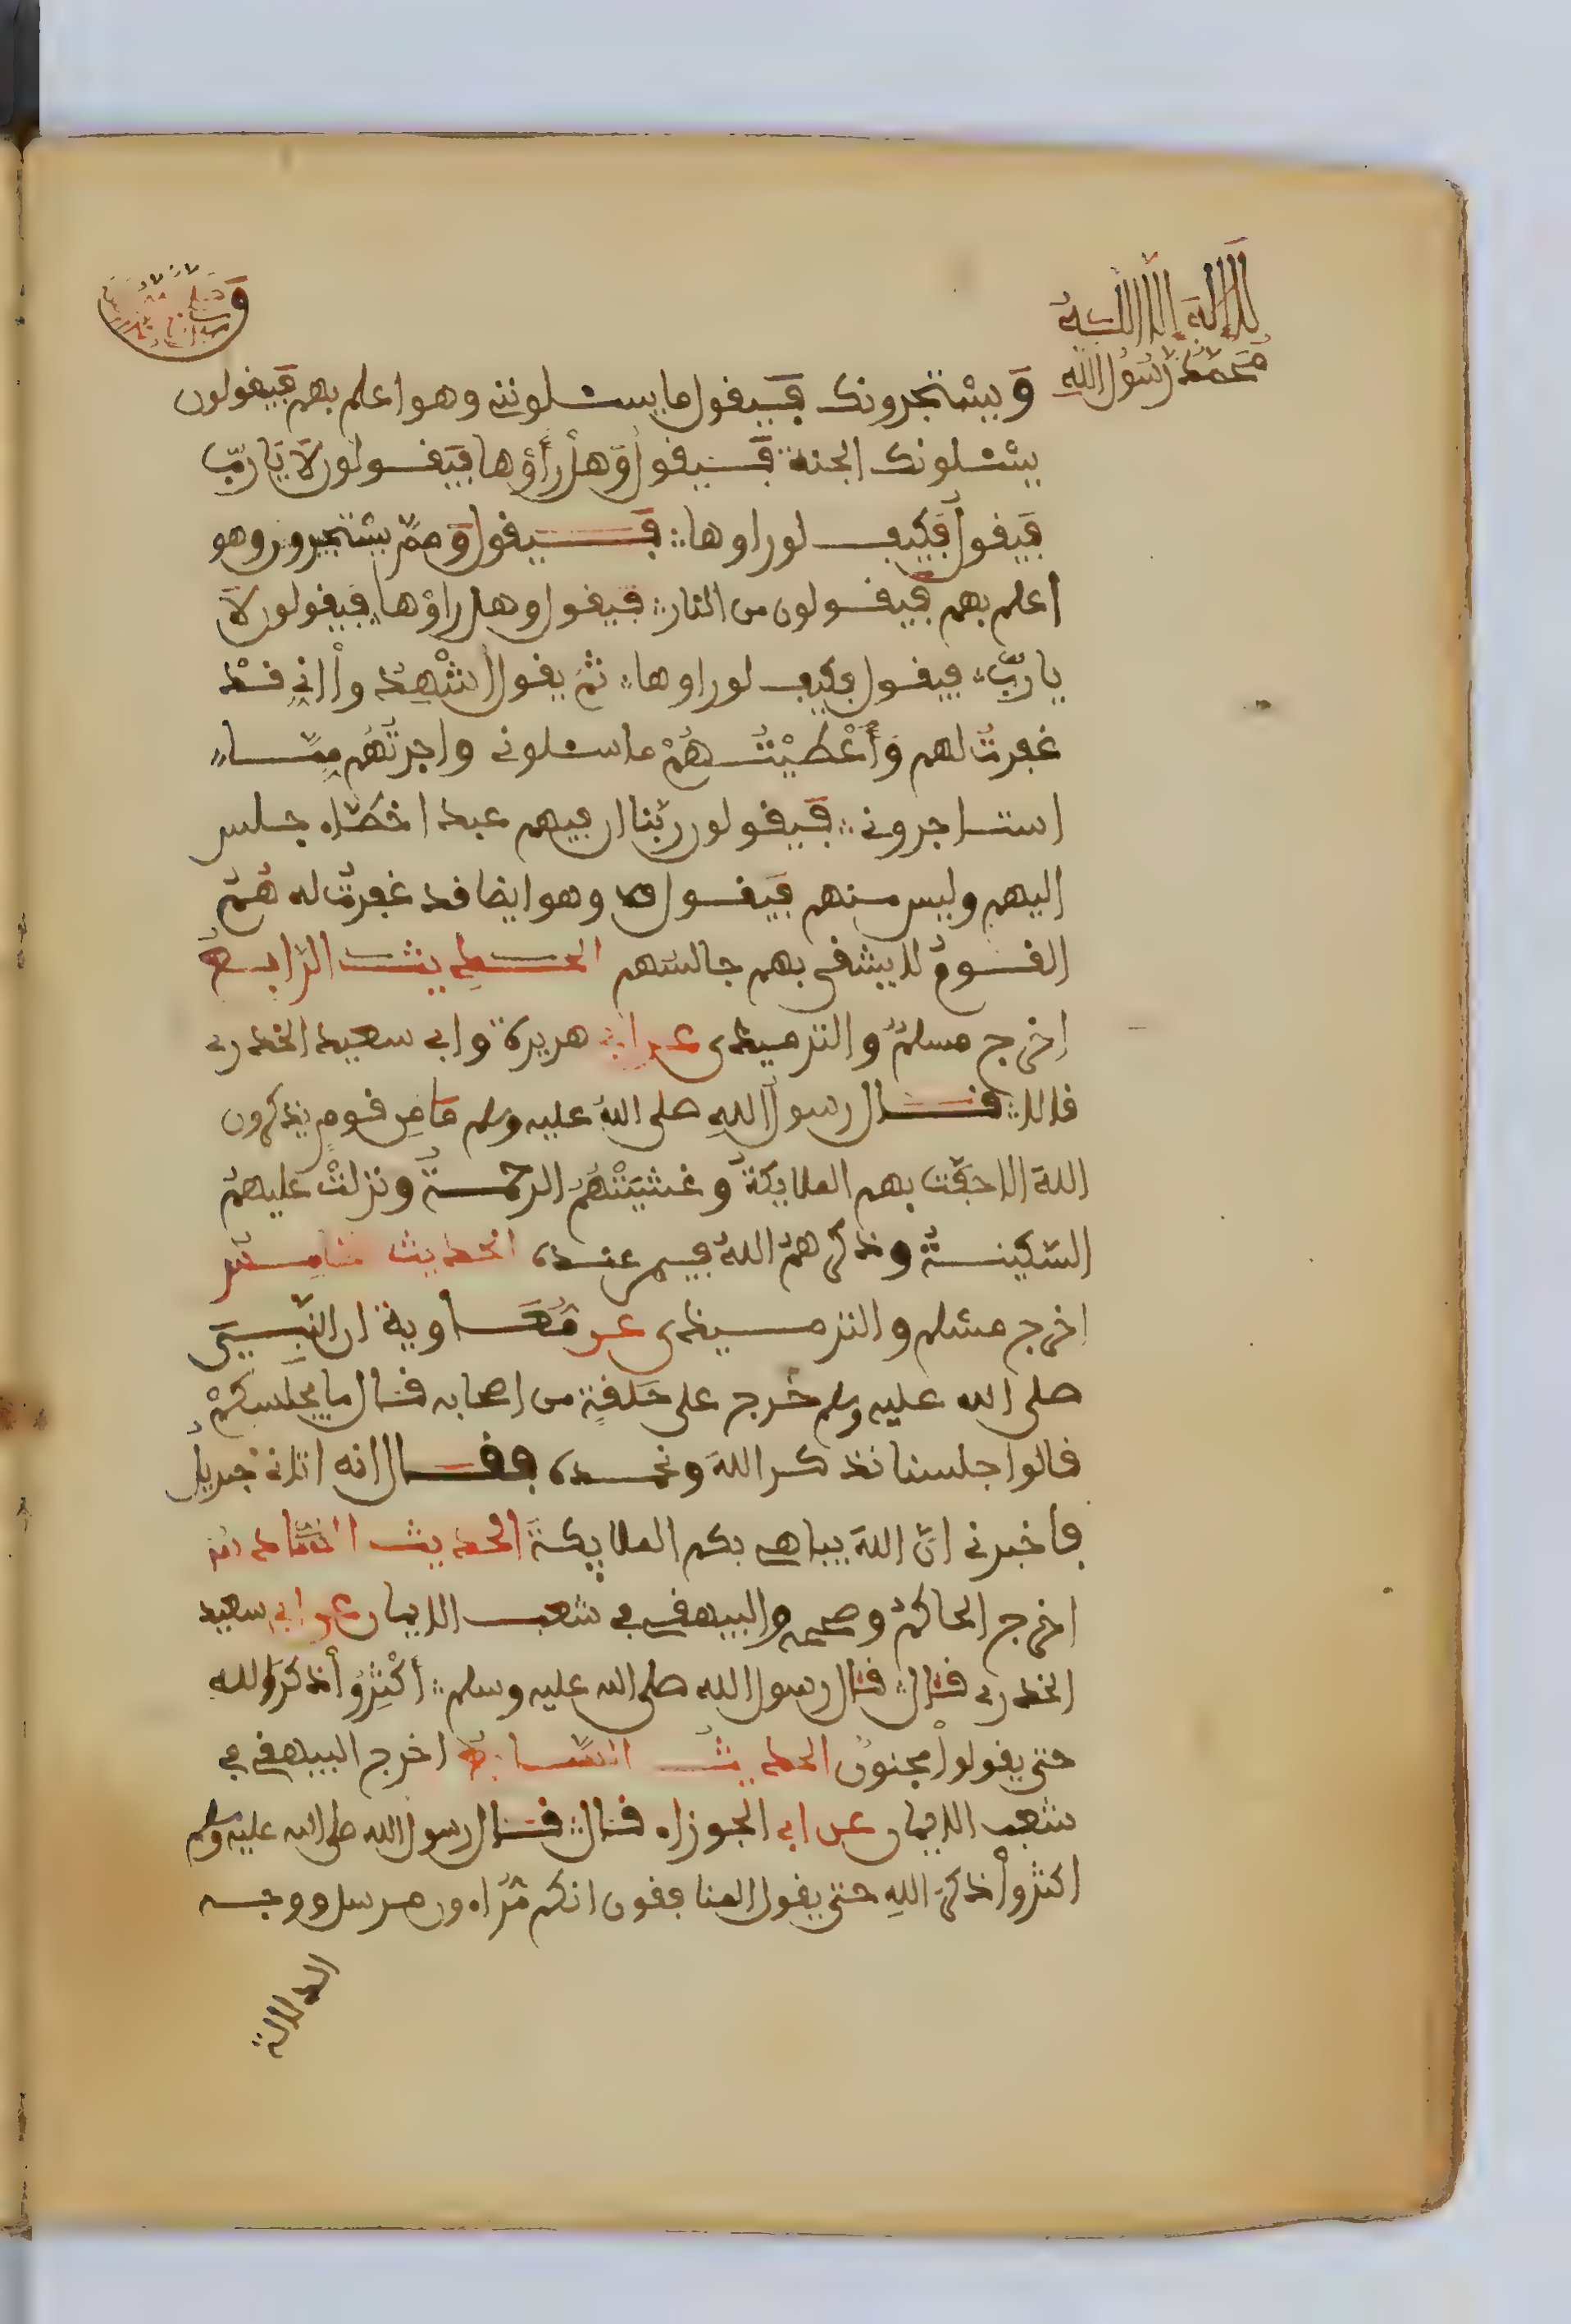 لا إله إلا الله
محمد رسول الله
ويستجيرونك فيقول ما يسئلونني وهو اعلم بهم فيقولون
يسئلونك الجنة فيقول وهل رأوها فيقولون لا يا ربّ
فيقول فكيف لو راوها فيقول وممّ يستجيرون وهو
اعلم بهم فيقولون من النار فيقول وهل راوها فيقولون لا
يا ربّ فيقول فكيف لو راوها ثم يقول اشهدوا اني قد
غفرت لهم وأعطيتهم ما سئلوني واجرتهم ممّا
استاجروني فيقولون ربّنا ان فيهم عبدا خطّاء جلس
اليهم وليس منهم فيقول وهو ايضا قد غفرت له هم
القوم لا يشقى بهم جالسهم الحديث الرابع
اخرج مسلم والترميذي عن ابي هريرة وابي سعيد الخدري
قالا قال رسول الله صلى الله عليه وسلم ما من قوم يذكرون
الله الا حفّت بهم الملايكة وغشيتهم الرحمة ونزلت عليهم
السّكينة وذكرهم الله فيمن عنده الحديث خامس
اخرج مسلم والترميذي عن معاوية ان النّبيّ
صلى الله عليه وسلم خرج على حلقة من اصحابه فقال ما يجلسكم
قالوا جلسنا نذكر الله ونحمده فقال انه اتاني جبريل
فاخبرني انّ الله يباهي بكم الملايكة الحديث السّادس
اخرج الحاكم وصححه والبيهقي في شعب الايمان عن ابي سعيد
الخدري قال قال رسول الله صلى الله عليه وسلم أكثروا ذكر الله
حتى يقولوا مجنون الحديث السّابع اخرج البيهقي في
شعب الايمان عن ابي الجوزاء قال قال رسول الله صلى الله عليه وسلم
اكثروا ذكر الله حتى يقول المنافقون انكم مراءون مرسل ووجه
الدلالة